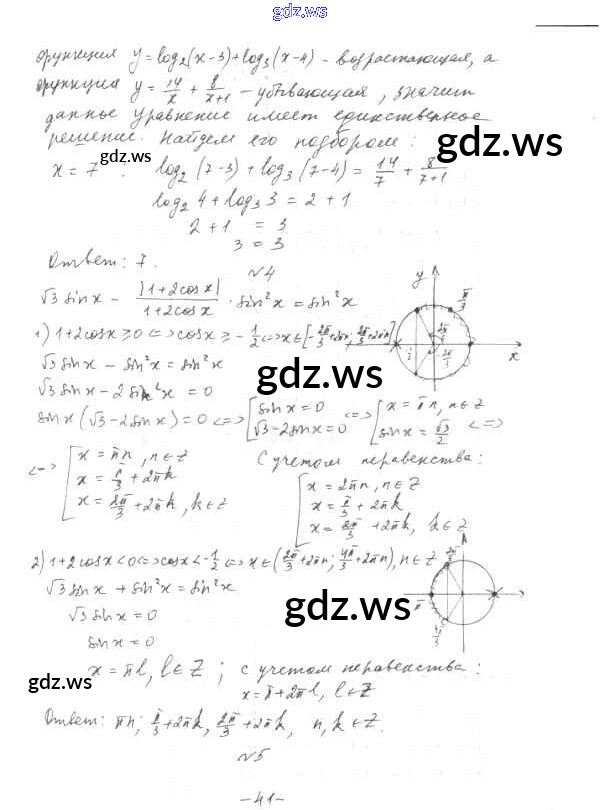 gdz.ws
функция y = log₂(x-3) + log₃(x-4) - возрастающая, а
функция y = 14/x + 8/(x+1) - убывающая, значит
данное уравнение имеет единственное
решение. Найдем его подбором:
x = 7: log₂(7-3) + log₃(7-4) = 14/7 + 8/(7+1)
log₂4 + log₃3 = 2 + 1
2 + 1 = 3
3 = 3
Ответ: 7.
№4
√3 sin x - |1+2cos x|/(1+2cos x) · sin²x = sin²x
1) 1+2cos x ≥ 0 <=> cos x ≥ -1/2 <=> x ∈ [-2π/3+2πn, 2π/3+2πn]
√3 sin x - sin²x = sin²x
√3 sin x - 2 sin²x = 0
sin x(√3 - 2 sin x) = 0 <=> [sin x = 0 <=> [x = πn, n ∈ Z
√3 - 2 sin x = 0 sin x = √3/2 <=>
<=> [x = πn, n ∈ Z
x = π/3 + 2πk
x = 2π/3 + 2πk, k ∈ Z
С учетом неравенства:
[x = 2πn, n ∈ Z
x = π/3 + 2πk
x = 2π/3 + 2πk, k ∈ Z
2) 1+2cos x < 0 <=> cos x < -1/2 <=> x ∈ (2π/3+2πn; 4π/3+2πn), n ∈ Z
√3 sin x + sin²x = sin²x
√3 sin x = 0
sin x = 0
x = πl, l ∈ Z; с учетом неравенства:
x = π + 2πl, l ∈ Z
Ответ: πn; π/3 + 2πk, 2π/3 + 2πk, n, k ∈ Z.
№5
-41-
y
x
π/3
2π/3
-2π/3
2π/3
π
4π/3
gdz.ws
gdz.ws
gdz.ws
gdz.ws
gdz.ws
gdz.ws
gdz.ws